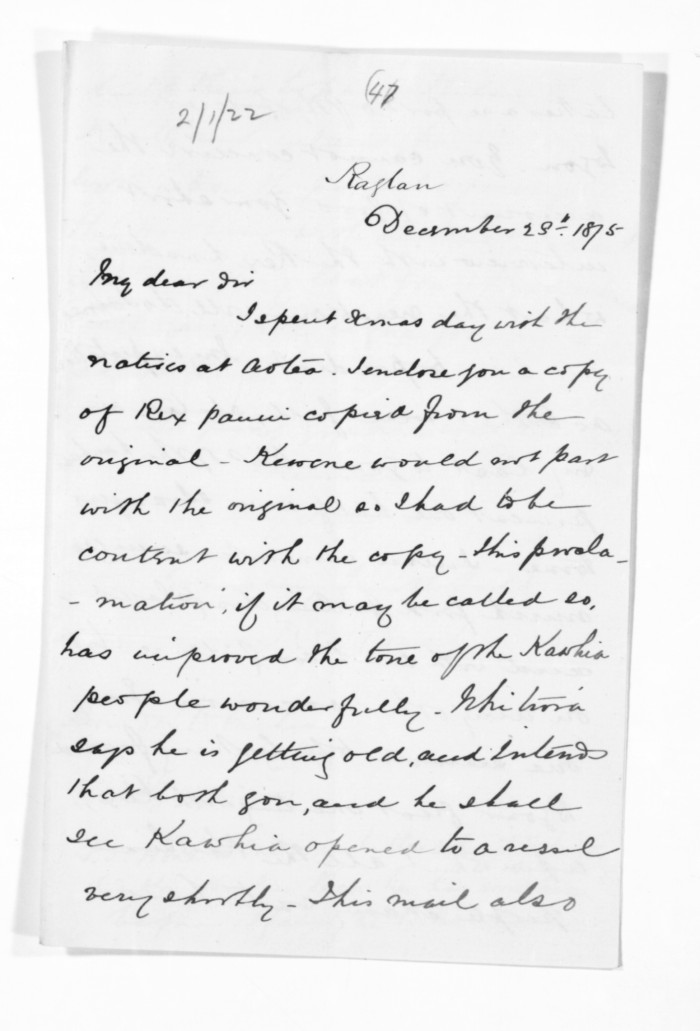 (47
2/1/22
Raglan
December 28th 1875
My dear Sir
I spent Xmas day with the
natives at Aotea. I enclose you a copy
of Rex paniu copied from the
original - Kewene would not part
with the original so I had to be
content with the copy - This procla-
- mation, if it may be called so,
has improved the tone of the Kawhia
people wonderfully -
says he is getting old, and intends
that both you, and he shall
see Kawhia opened to a vessel
very shortly - This mail also